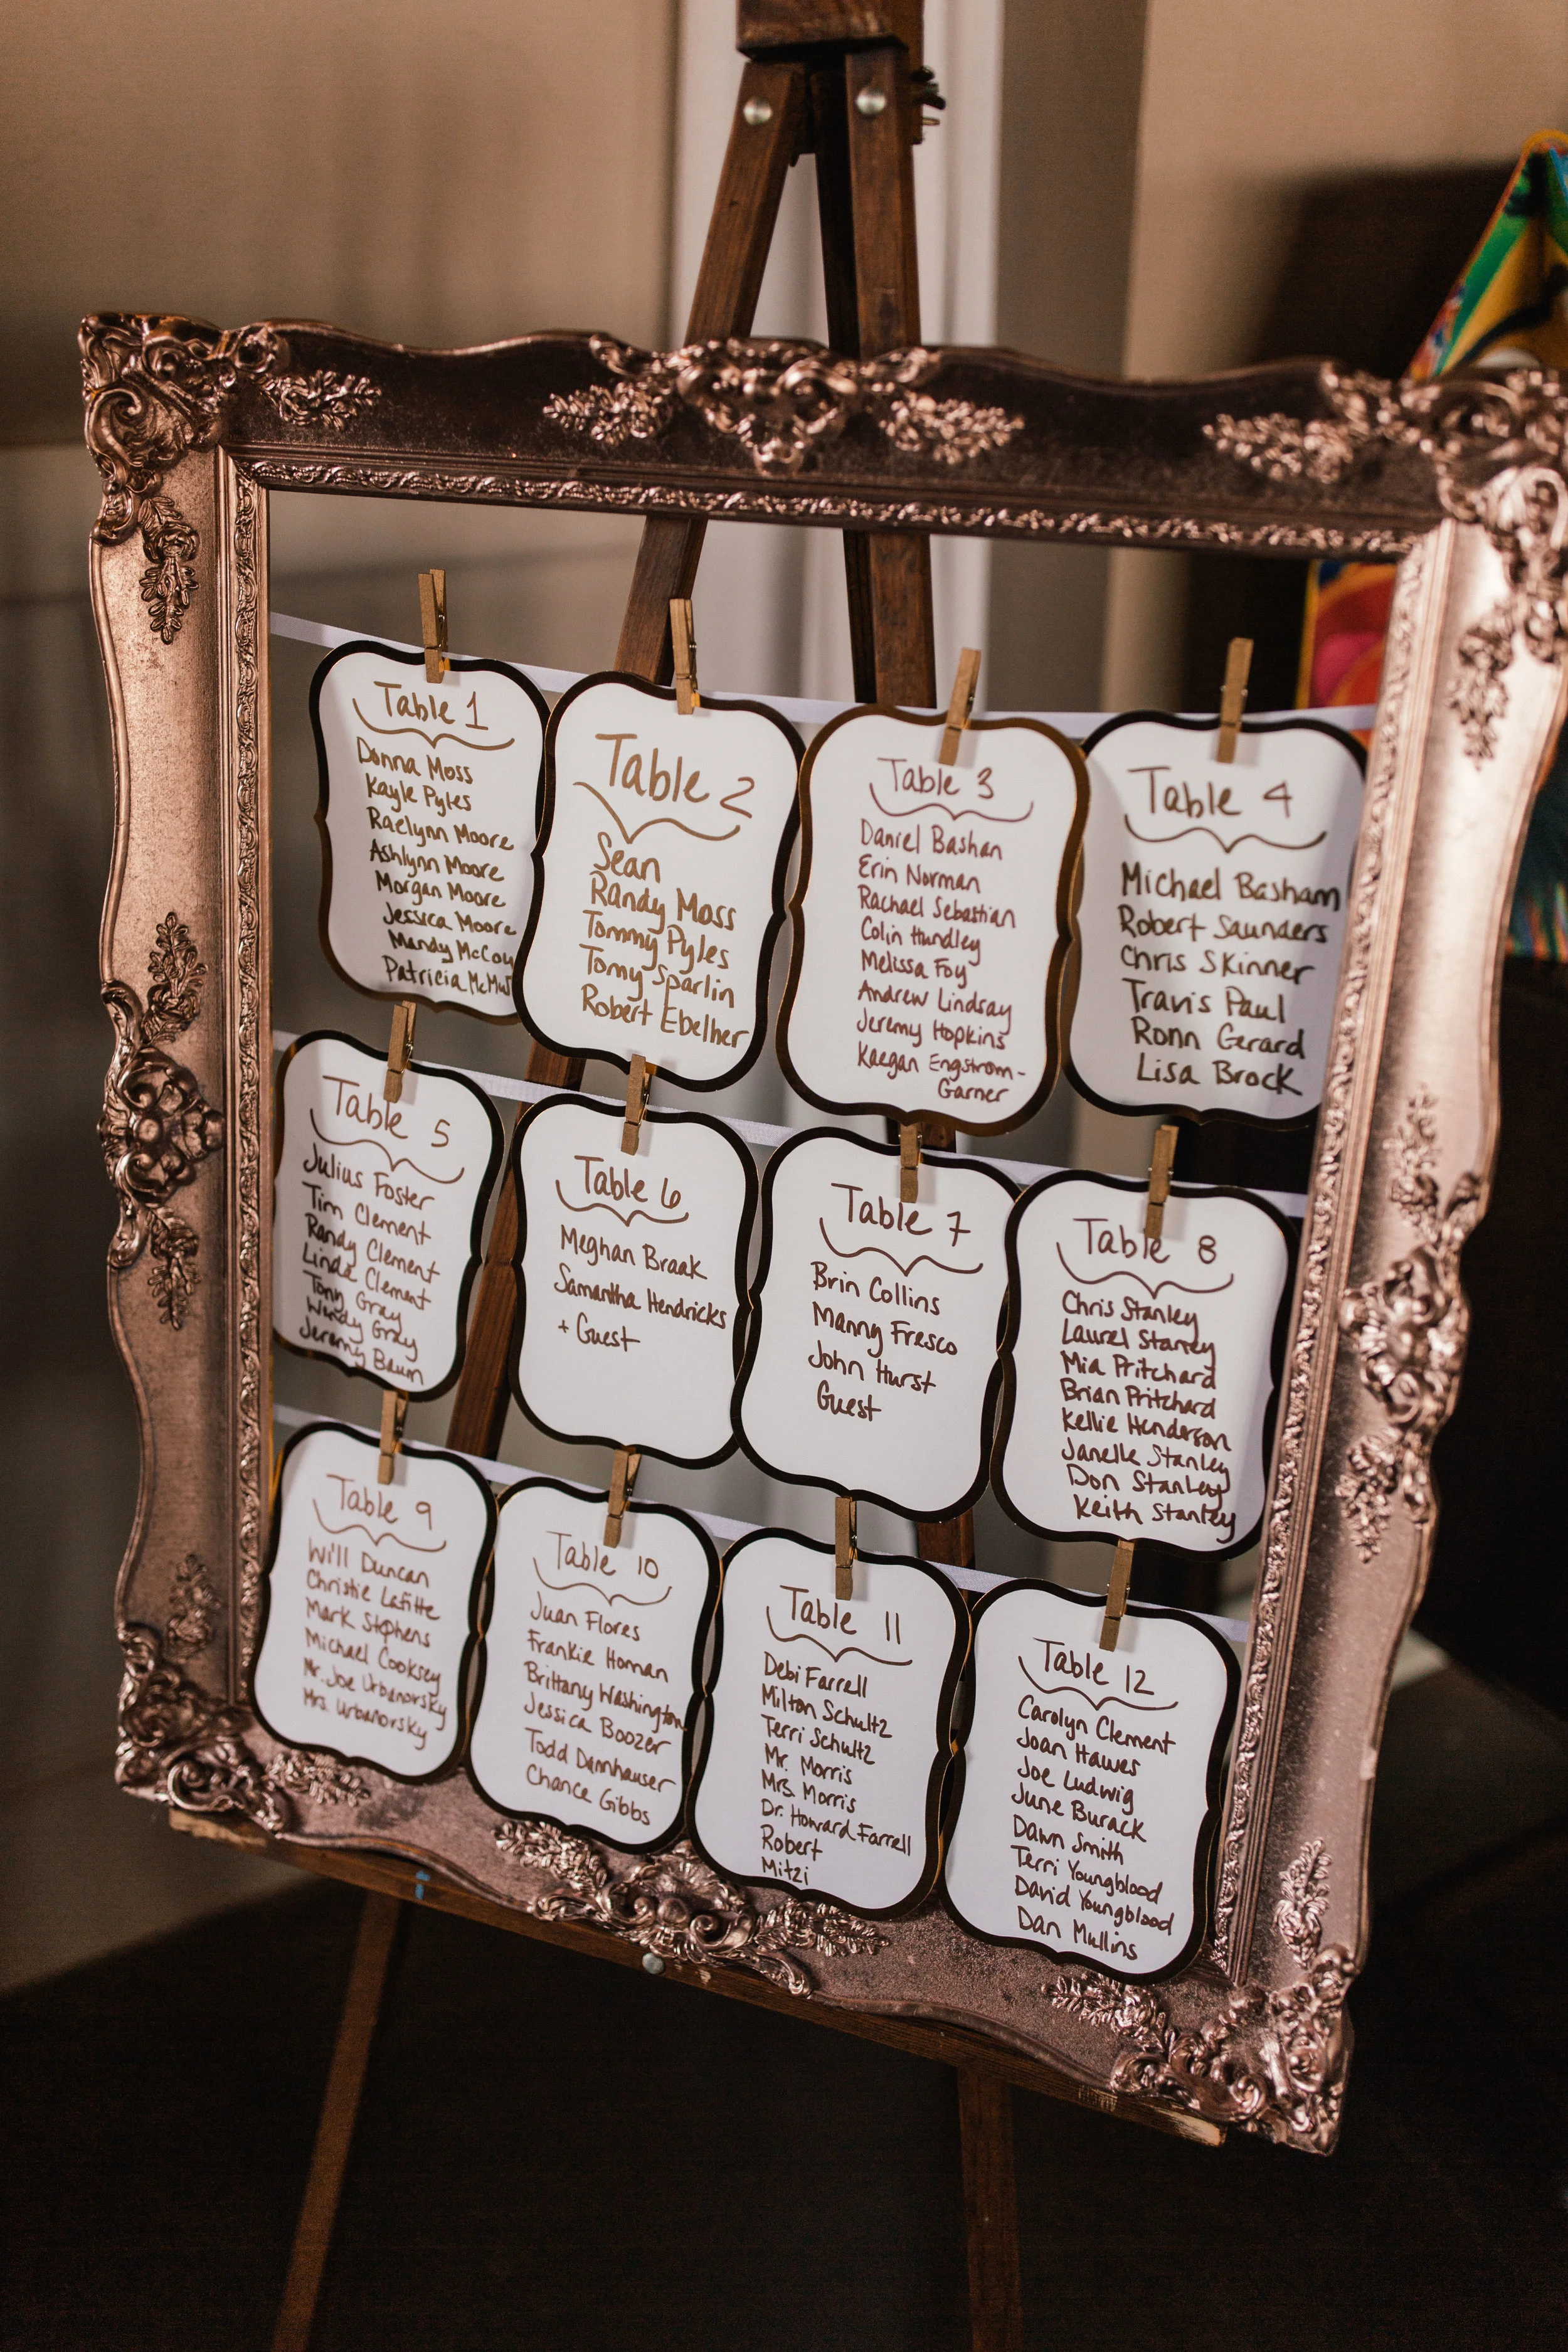 Table 1
Donna Moss
Kayle Pyles
Raelynn Moore
Ashlynn Moore
Morgan Moore
Jessica Moore
Mandy McCoy
Patricia
Table 2
Sean
Randy Moss
Tommy Pyles
Tomy Sparlin
Robert Ebelher
Table 3
Daniel Bashan
Erin Norman
Rachael Sebastian
Colin Hundley
Melissa Foy
Andrew Lindsay
Jeremy Hopkins
Kaegan Engstrom-
Garner
Table 4
Michael Basham
Robert Saunders
Chris Skinner
Travis Paul
Ronn Gerard
Lisa Brock
Table 5
Julius Foster
Tim Clement
Randy Clement
Linda Clement
Tony Gray
Windy Gray
Jeremy Baum
Table 6
Meghan Braak
Samantha Hendricks
+ Guest
Table 7
Brin Collins
Manny Fresco
John Hurst
Guest
Table 8
Chris Stanley
Laurel Stanley
Mia Pritchard
Brian Pritchard
Kellie Henderson
Janelle Stanley
Don Stanley
Keith Stanley
Table 9
Will Duncan
Christie Lafitte
Mark Stephens
Michael Cooksey
Mr. Joe Urbanorsky
Mrs. Urbanorsky
Table 10
Juan Flores
Frankie Homan
Brittany Washington
Jessica Boozer
Todd Dannhauser
Chance Gibbs
Table 11
Debi Farrell
Milton Schultz
Terri Schultz
Mr. Morris
Mrs. Morris
Dr. Howard Farrell
Robert
Mitzi
Table 12
Carolyn Clement
Joan Hawes
Joe Ludwig
June Burack
Dawn Smith
Terri Youngblood
David Youngblood
Dan Mullins